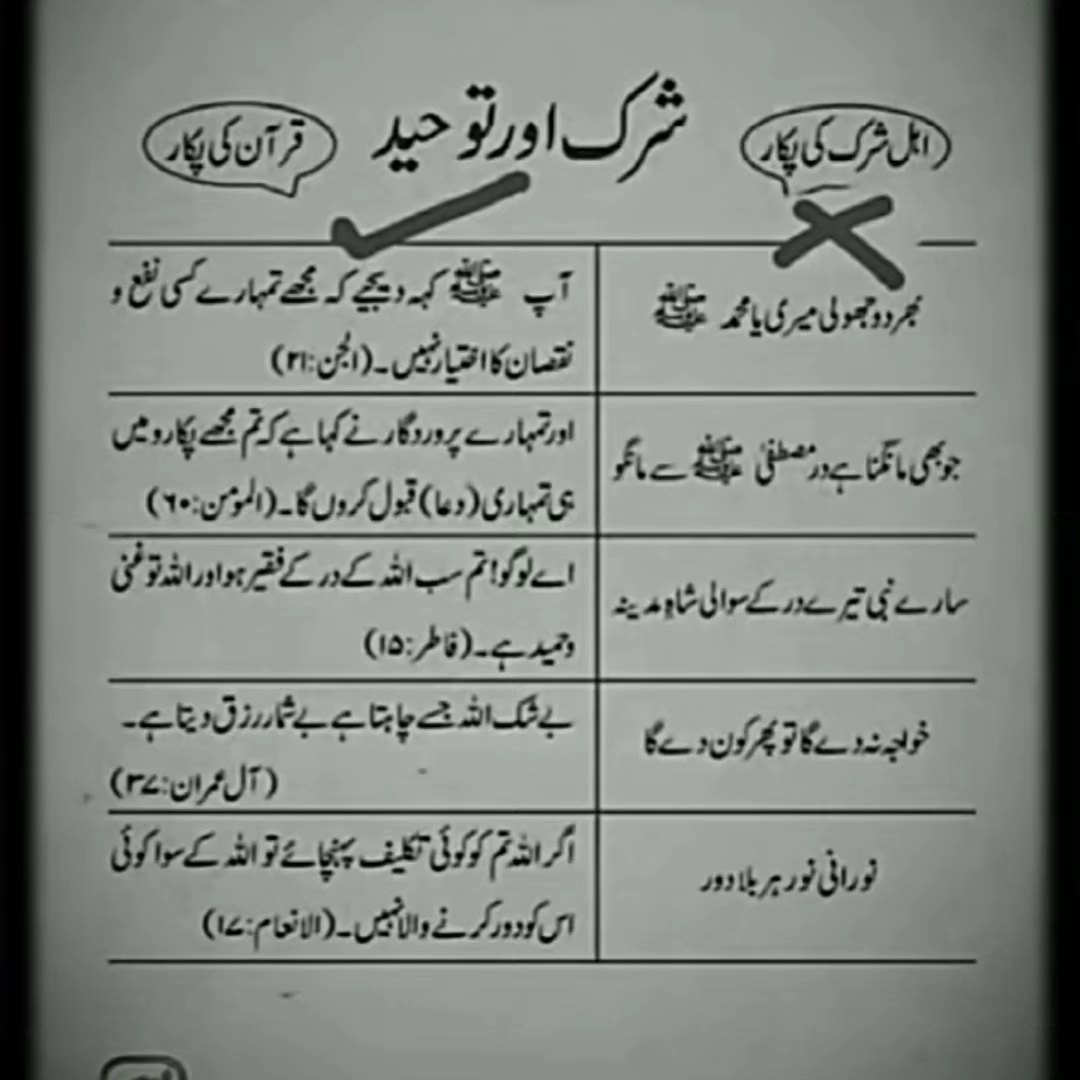 اہل شرک کی پکار
شرک اور توحید
قرآن کی پکار
بھر دو جھولی میری یا محمد ﷺ
آپ ﷺ کہہ دیجیے کہ مجھے تمہارے کسی نفع و
نقصان کا اختیار نہیں۔ (الجن:۲۱)
جو بھی مانگنا ہے در مصطفیٰ ﷺ سے مانگو
اور تمہارے پروردگار نے کہا ہے کہ تم مجھے پکارو میں
ہی تمہاری (دعا) قبول کروں گا۔ (المومن:۶۰)
سارے نبی تیرے در کے سوالی شاہِ مدینہ
اے لوگو! تم سب اللہ کے در کے فقیر ہو اور اللہ تو غنی
وحمید ہے۔ (فاطر:۱۵)
خواجہ نہ دے گا تو پھر کون دے گا
بے شک اللہ جسے چاہتا ہے بے شمار رزق دیتا ہے۔
(آل عمران:۳۷)
نورانی نور ہر بلا دور
اگر اللہ تم کو کوئی تکلیف پہنچائے تو اللہ کے سوا کوئی
اس کو دور کرنے والا نہیں۔ (الانعام:۱۷)